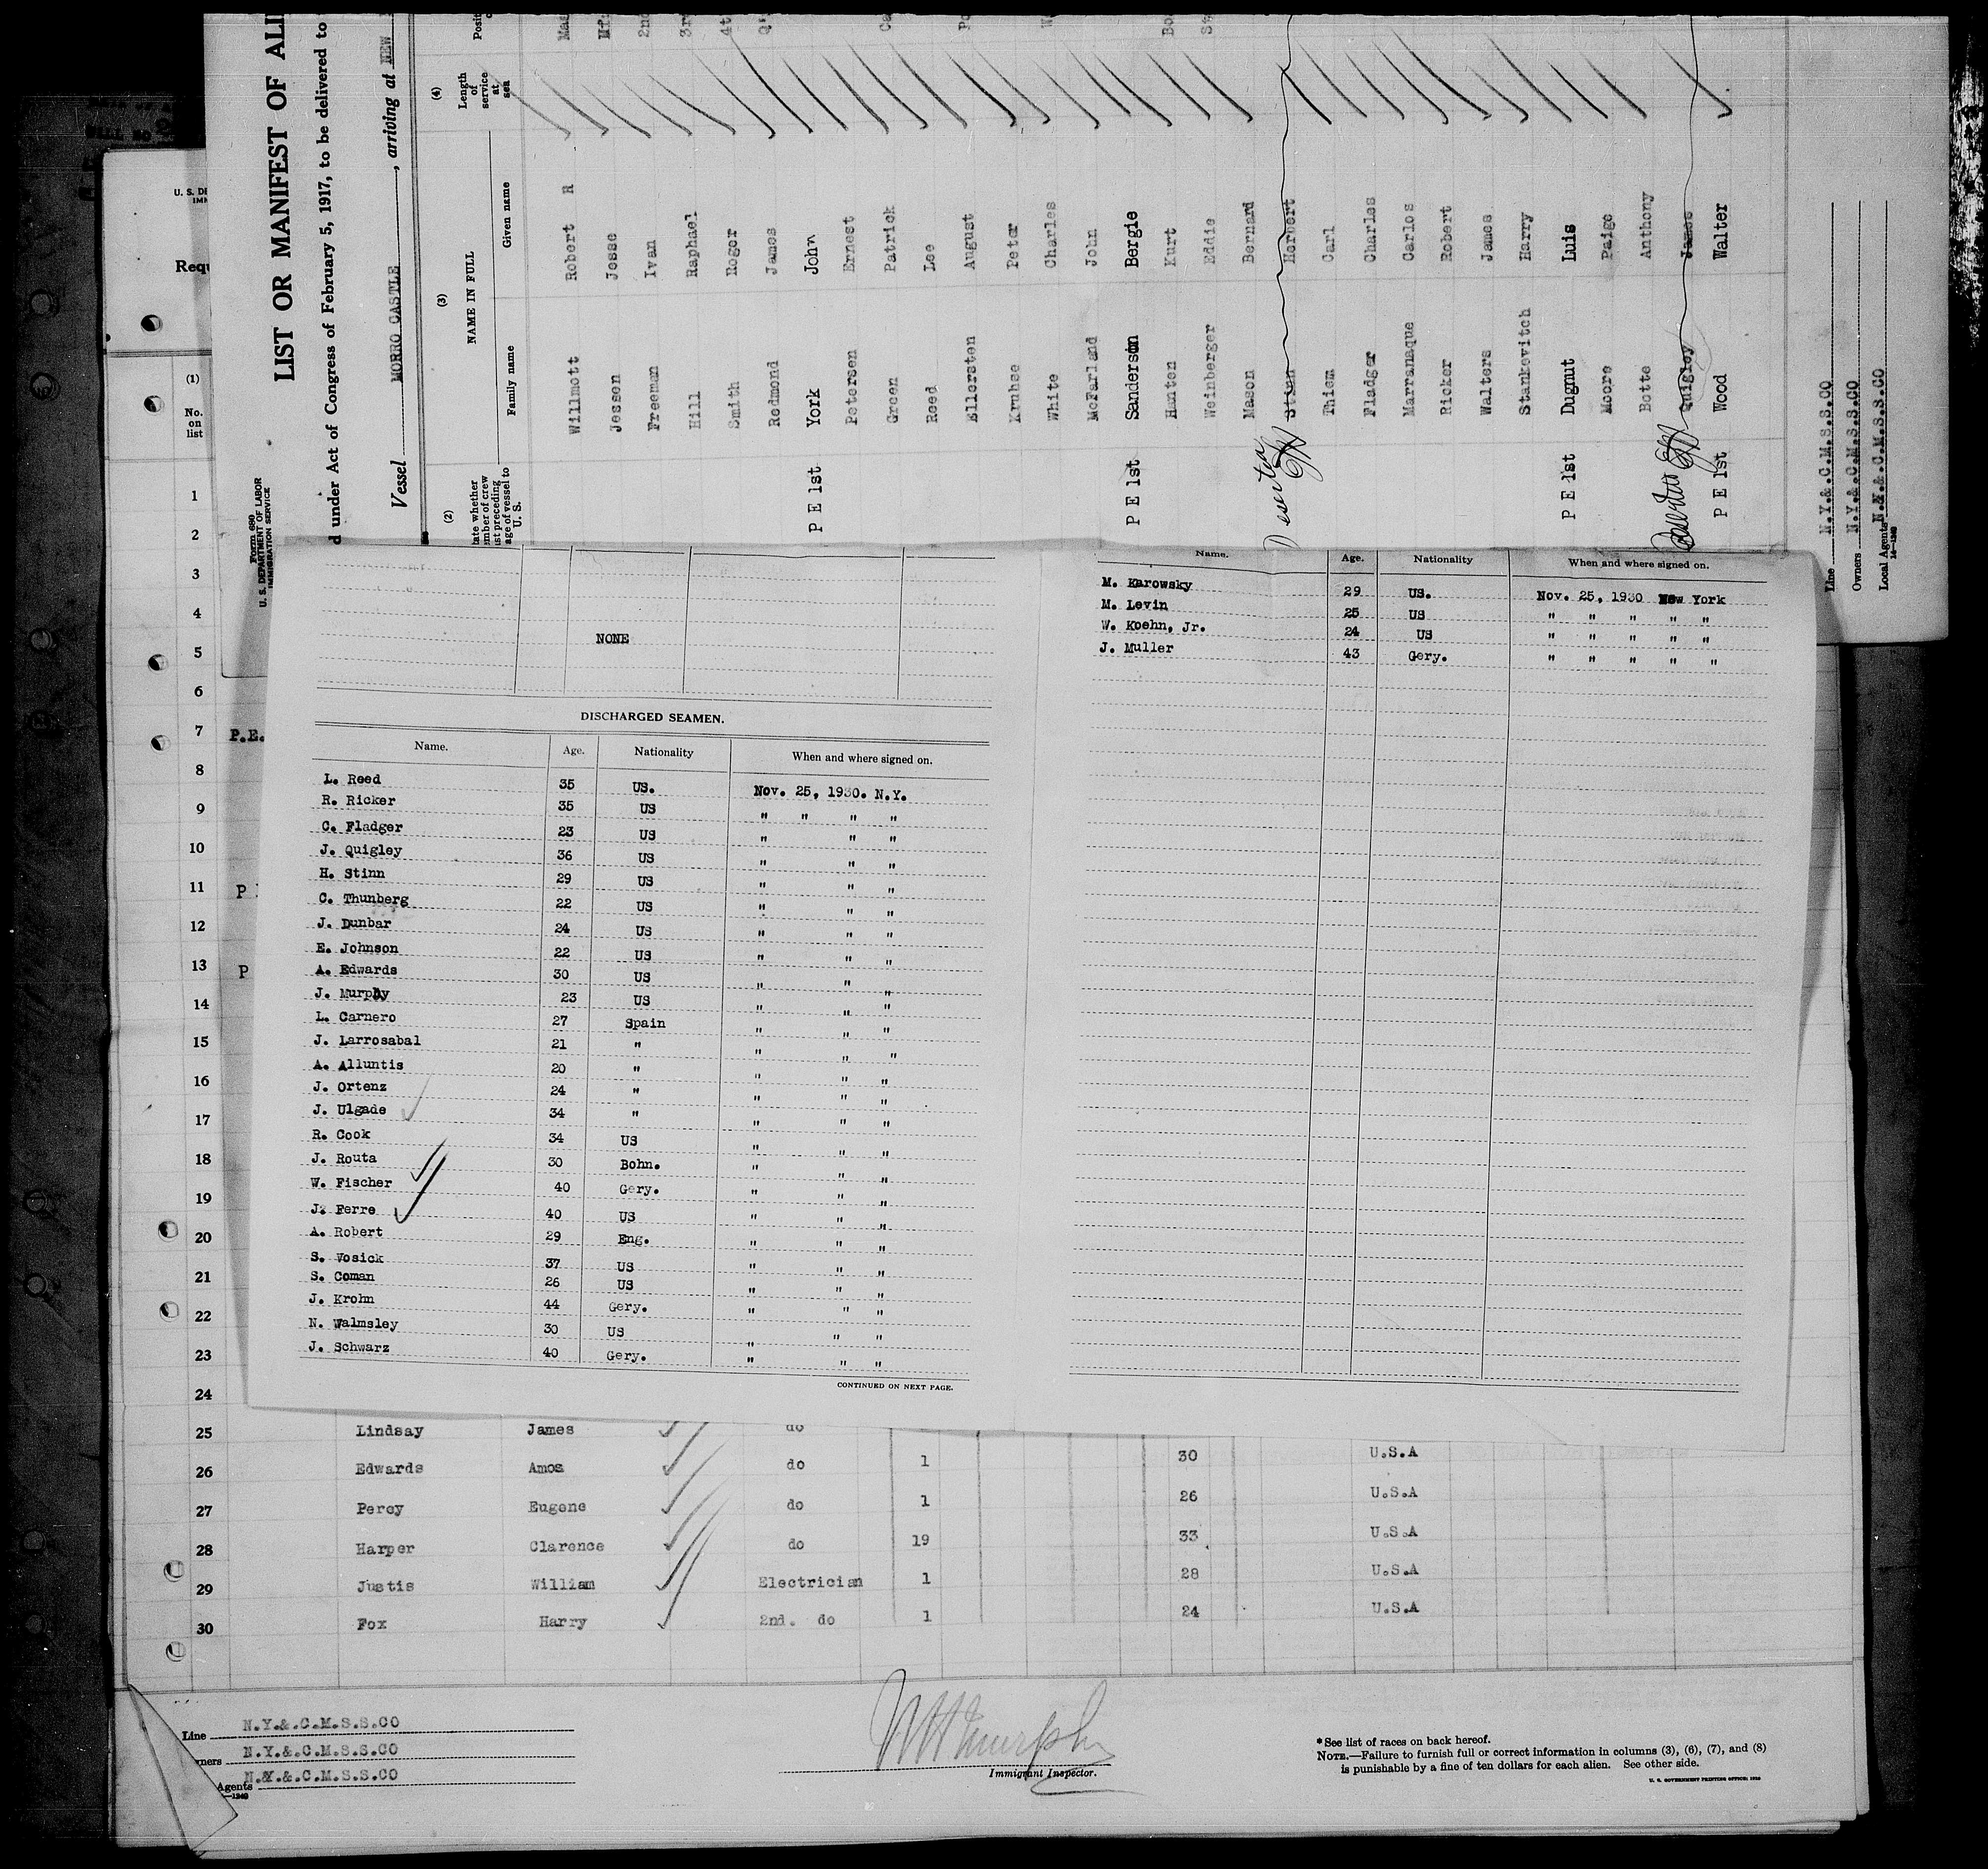 LIST OR MANIFEST OF
under Act of Congress of February 5, 1917, to be delivered to
Vessel MORRO CASTLE, arriving at NEW
Form 680
U. S. DEPARTMENT OF LABOR
IMMIGRATION SERVICE
(2) (3) (4)
NAME IN FULL
Family name Given name
Length of service at sea
Willmott Robert R
Jessen Jesse
Freeman Ivan
Hill Raphael
Smith Roger
Redmond James
P E 1st York John
Petersen Ernest
Green Patrick
Reed Lee
Ellersten August
Kruhse Peter
White Charles
McFarland John
P E 1st Sanderson Bergie
Hanten Kurt
Weinberger Eddie
Mason Bernard
Deserted Stinn Herbert
Thiem Carl
Fladger Charles
Marranaque Carlos
Ricker Robert
Walters James
Stankevitch Harry
P E 1st Dugnut Luis
Moore Paige
Botte Anthony
Quigley James
P E 1st Wood Walter
Line N.Y.&.C.M.S.S.CO
Owners N.Y.&.C.M.S.S.CO
Local Agents N.Y.&.C.M.S.S.CO
14—1240
(1)
No. on list
1
2
3
4
5
6
7 P.E.
8
9
10
11 P
12
13 P
14
15
16
17
18
19
20
21
22
23
24
NONE
DISCHARGED SEAMEN.
Name. Age. Nationality When and where signed on.
L. Reed 35 US. Nov. 25, 1930. N.Y.
R. Ricker 35 US " " " "
C. Fladger 23 US " " "
J. Quigley 36 US " " "
H. Stinn 29 US " " "
C. Thunberg 22 US " " "
J. Dunbar 24 US " " "
E. Johnson 22 US " " "
A. Edwards 30 US " " "
J. Murphy 23 US " " "
L. Carnero 27 Spain " " "
J. Larrosabal 21 " " " "
A. Alluntis 20 " " " "
J. Ortenz 24 " " " "
J. Ulgade 34 " " " "
R. Cook 34 US " " "
J. Routa 30 Bohn. " " "
W. Fischer 40 Gery. " " "
J. Ferre 40 US " " "
A. Robert 29 Eng. " " "
S. Vosick 37 US " " "
S. Coman 26 US " " "
J. Krohn 44 Gery. " " "
N. Walmsley 30 US " " "
J. Schwarz 40 Gery. " " "
CONTINUED ON NEXT PAGE.
Name. Age. Nationality When and where signed on.
M. Karowsky 29 US. Nov. 25, 1930 New York
M. Levin 25 US " " " " "
W. Koehn, Jr. 24 US " " " " "
J. Muller 43 Gery. " " " " "
25 Lindsay James do
26 Edwards Amos do 1 30 U.S.A
27 Percy Eugene do 1 26 U.S.A
28 Harper Clarence do 19 33 U.S.A
29 Justis William Electrician 1 28 U.S.A
30 Fox Harry 2nd. do 1 24 U.S.A
Line N.Y.&.C.M.S.S.CO
N.Y.&.C.M.S.S.CO
Agents N.Y.&.C.M.S.S.CO
Immigrant Inspector.
*See list of races on back hereof.
NOTE.—Failure to furnish full or correct information in columns (3), (6), (7), and (8)
is punishable by a fine of ten dollars for each alien. See other side.